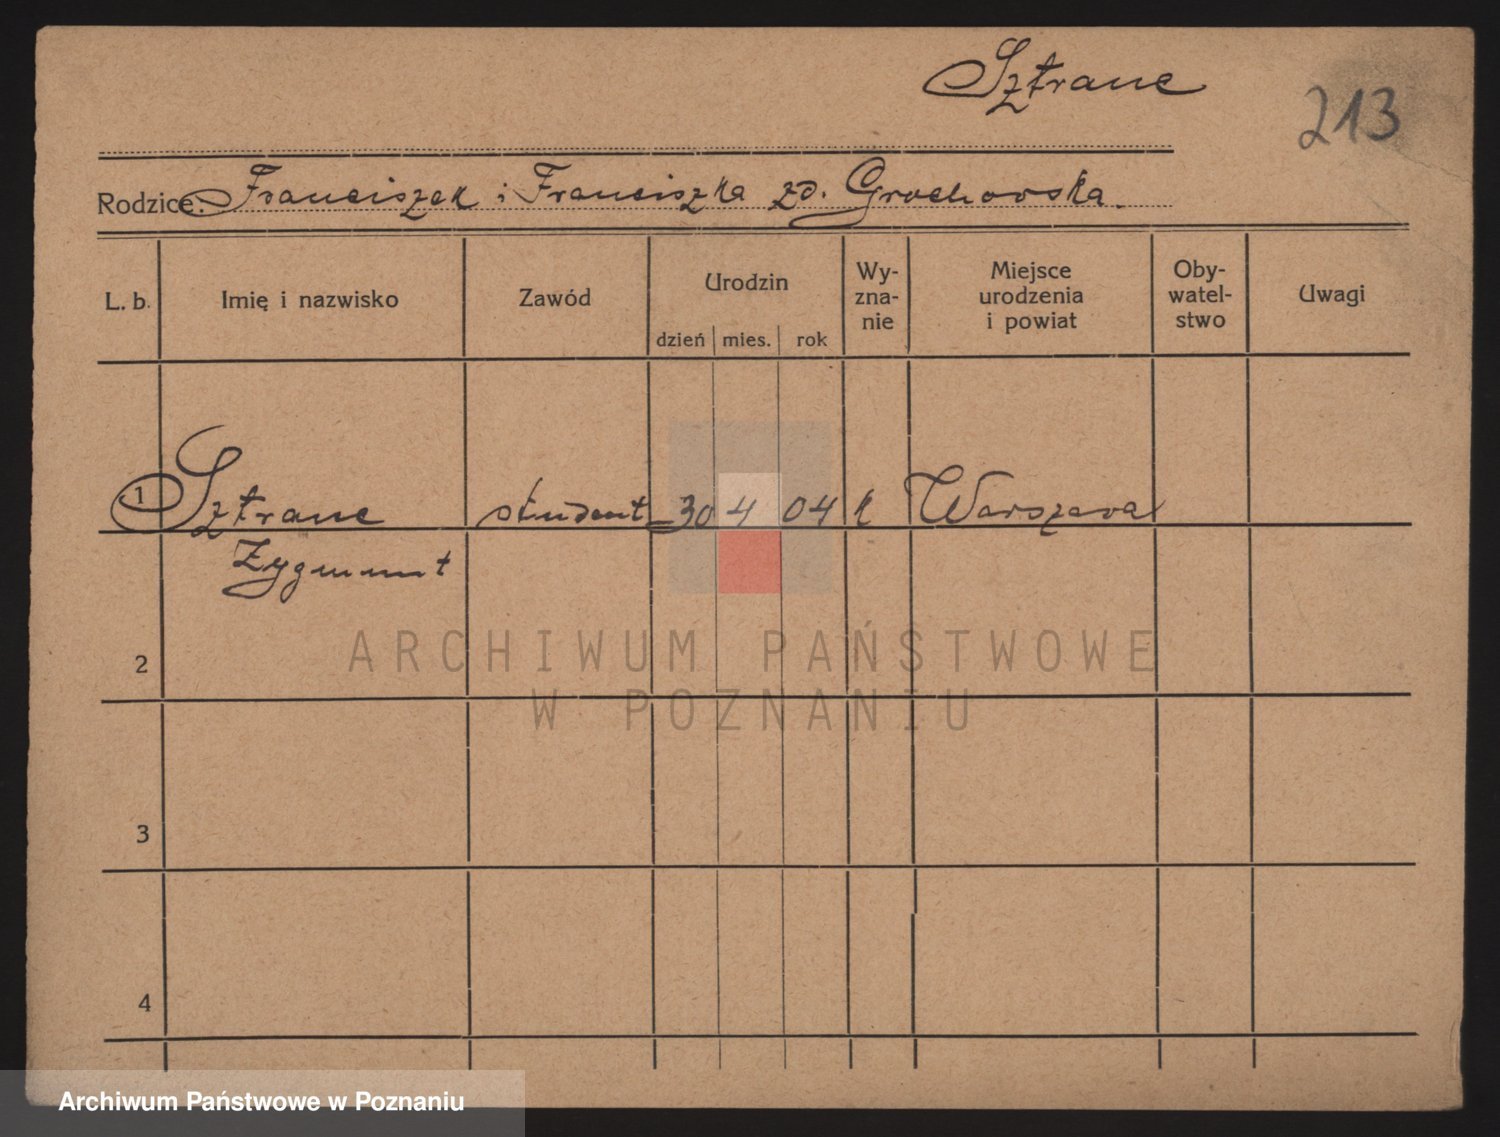 Sztranc
213
Rodzice: Franciszek i Franciszka zd. Grochowska.
L. b. Imię i nazwisko Zawód Urodzin dzień mies. rok Wy-zna-nie Miejsce urodzenia i powiat Oby-watel-stwo Uwagi
1 Sztranc student 30 4 04 k Warszawa
Zygmunt
2
ARCHIWUM PAŃSTWOWE
W POZNANIU
3
4
Archiwum Państwowe w Poznaniu